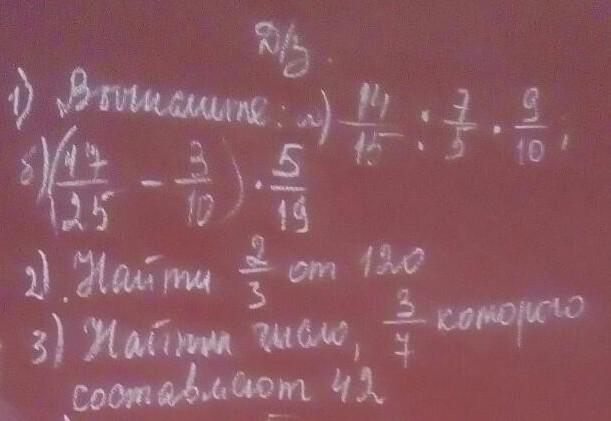 Д/з.
1) Вычислите: а) 14/15 : 7/5 · 9/10;
б) (17/25 - 3/10) · 5/19
2). Найти 2/3 от 120
3) Найти число, 3/7 которого
составляют 42